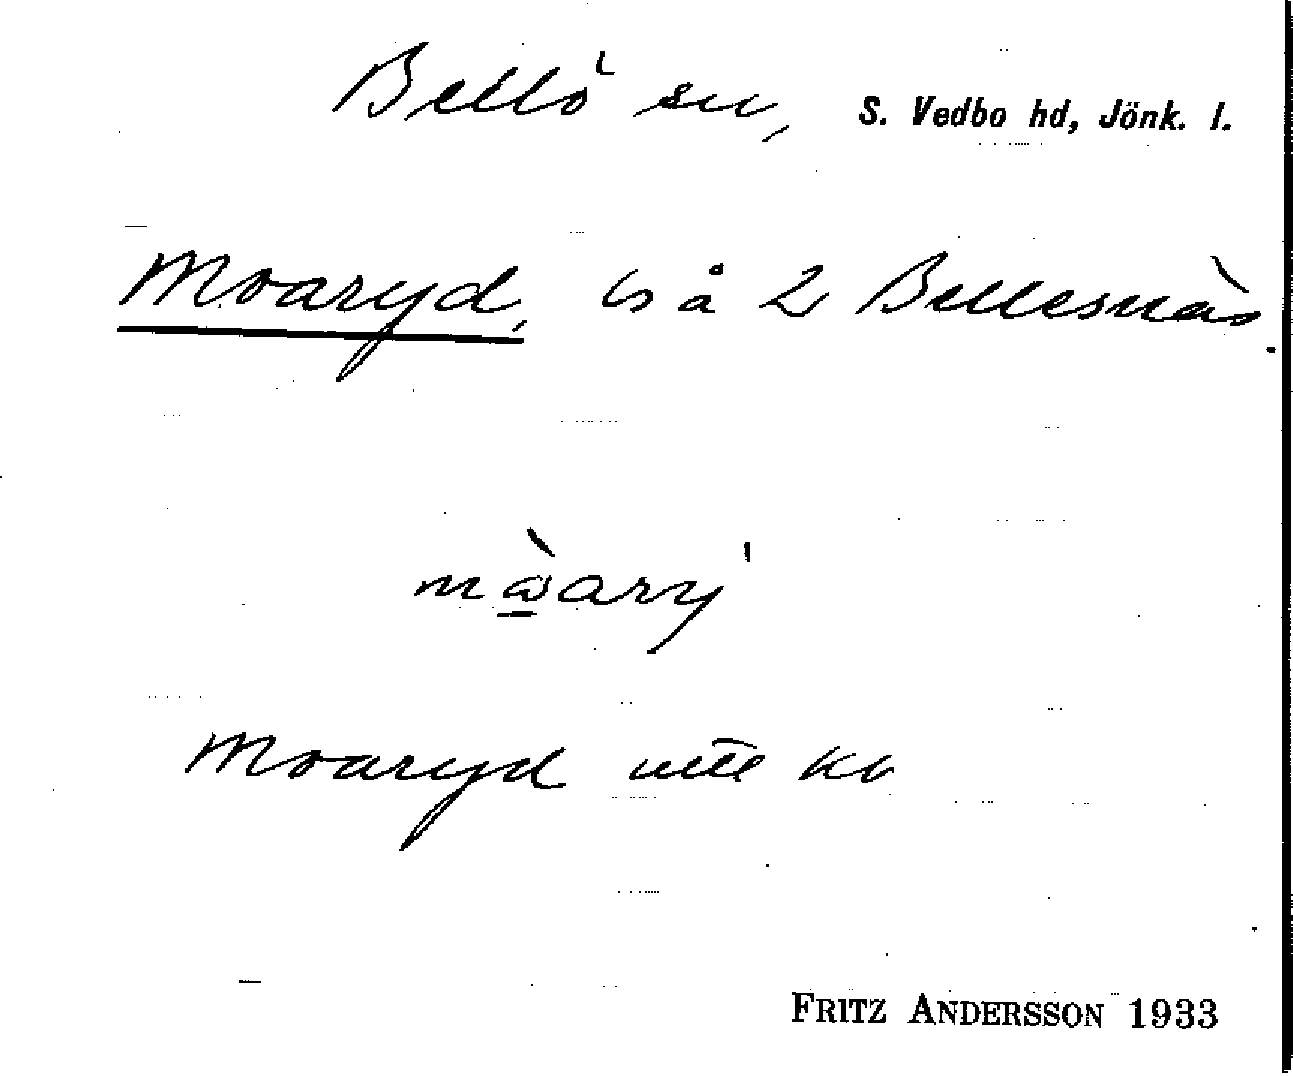 Bellö sn, S. Vedbo hd, Jönk. l.
Moaryd, ls å 2 Bellesnäs.
Moaryd
FRITZ ANDERSSON 1933